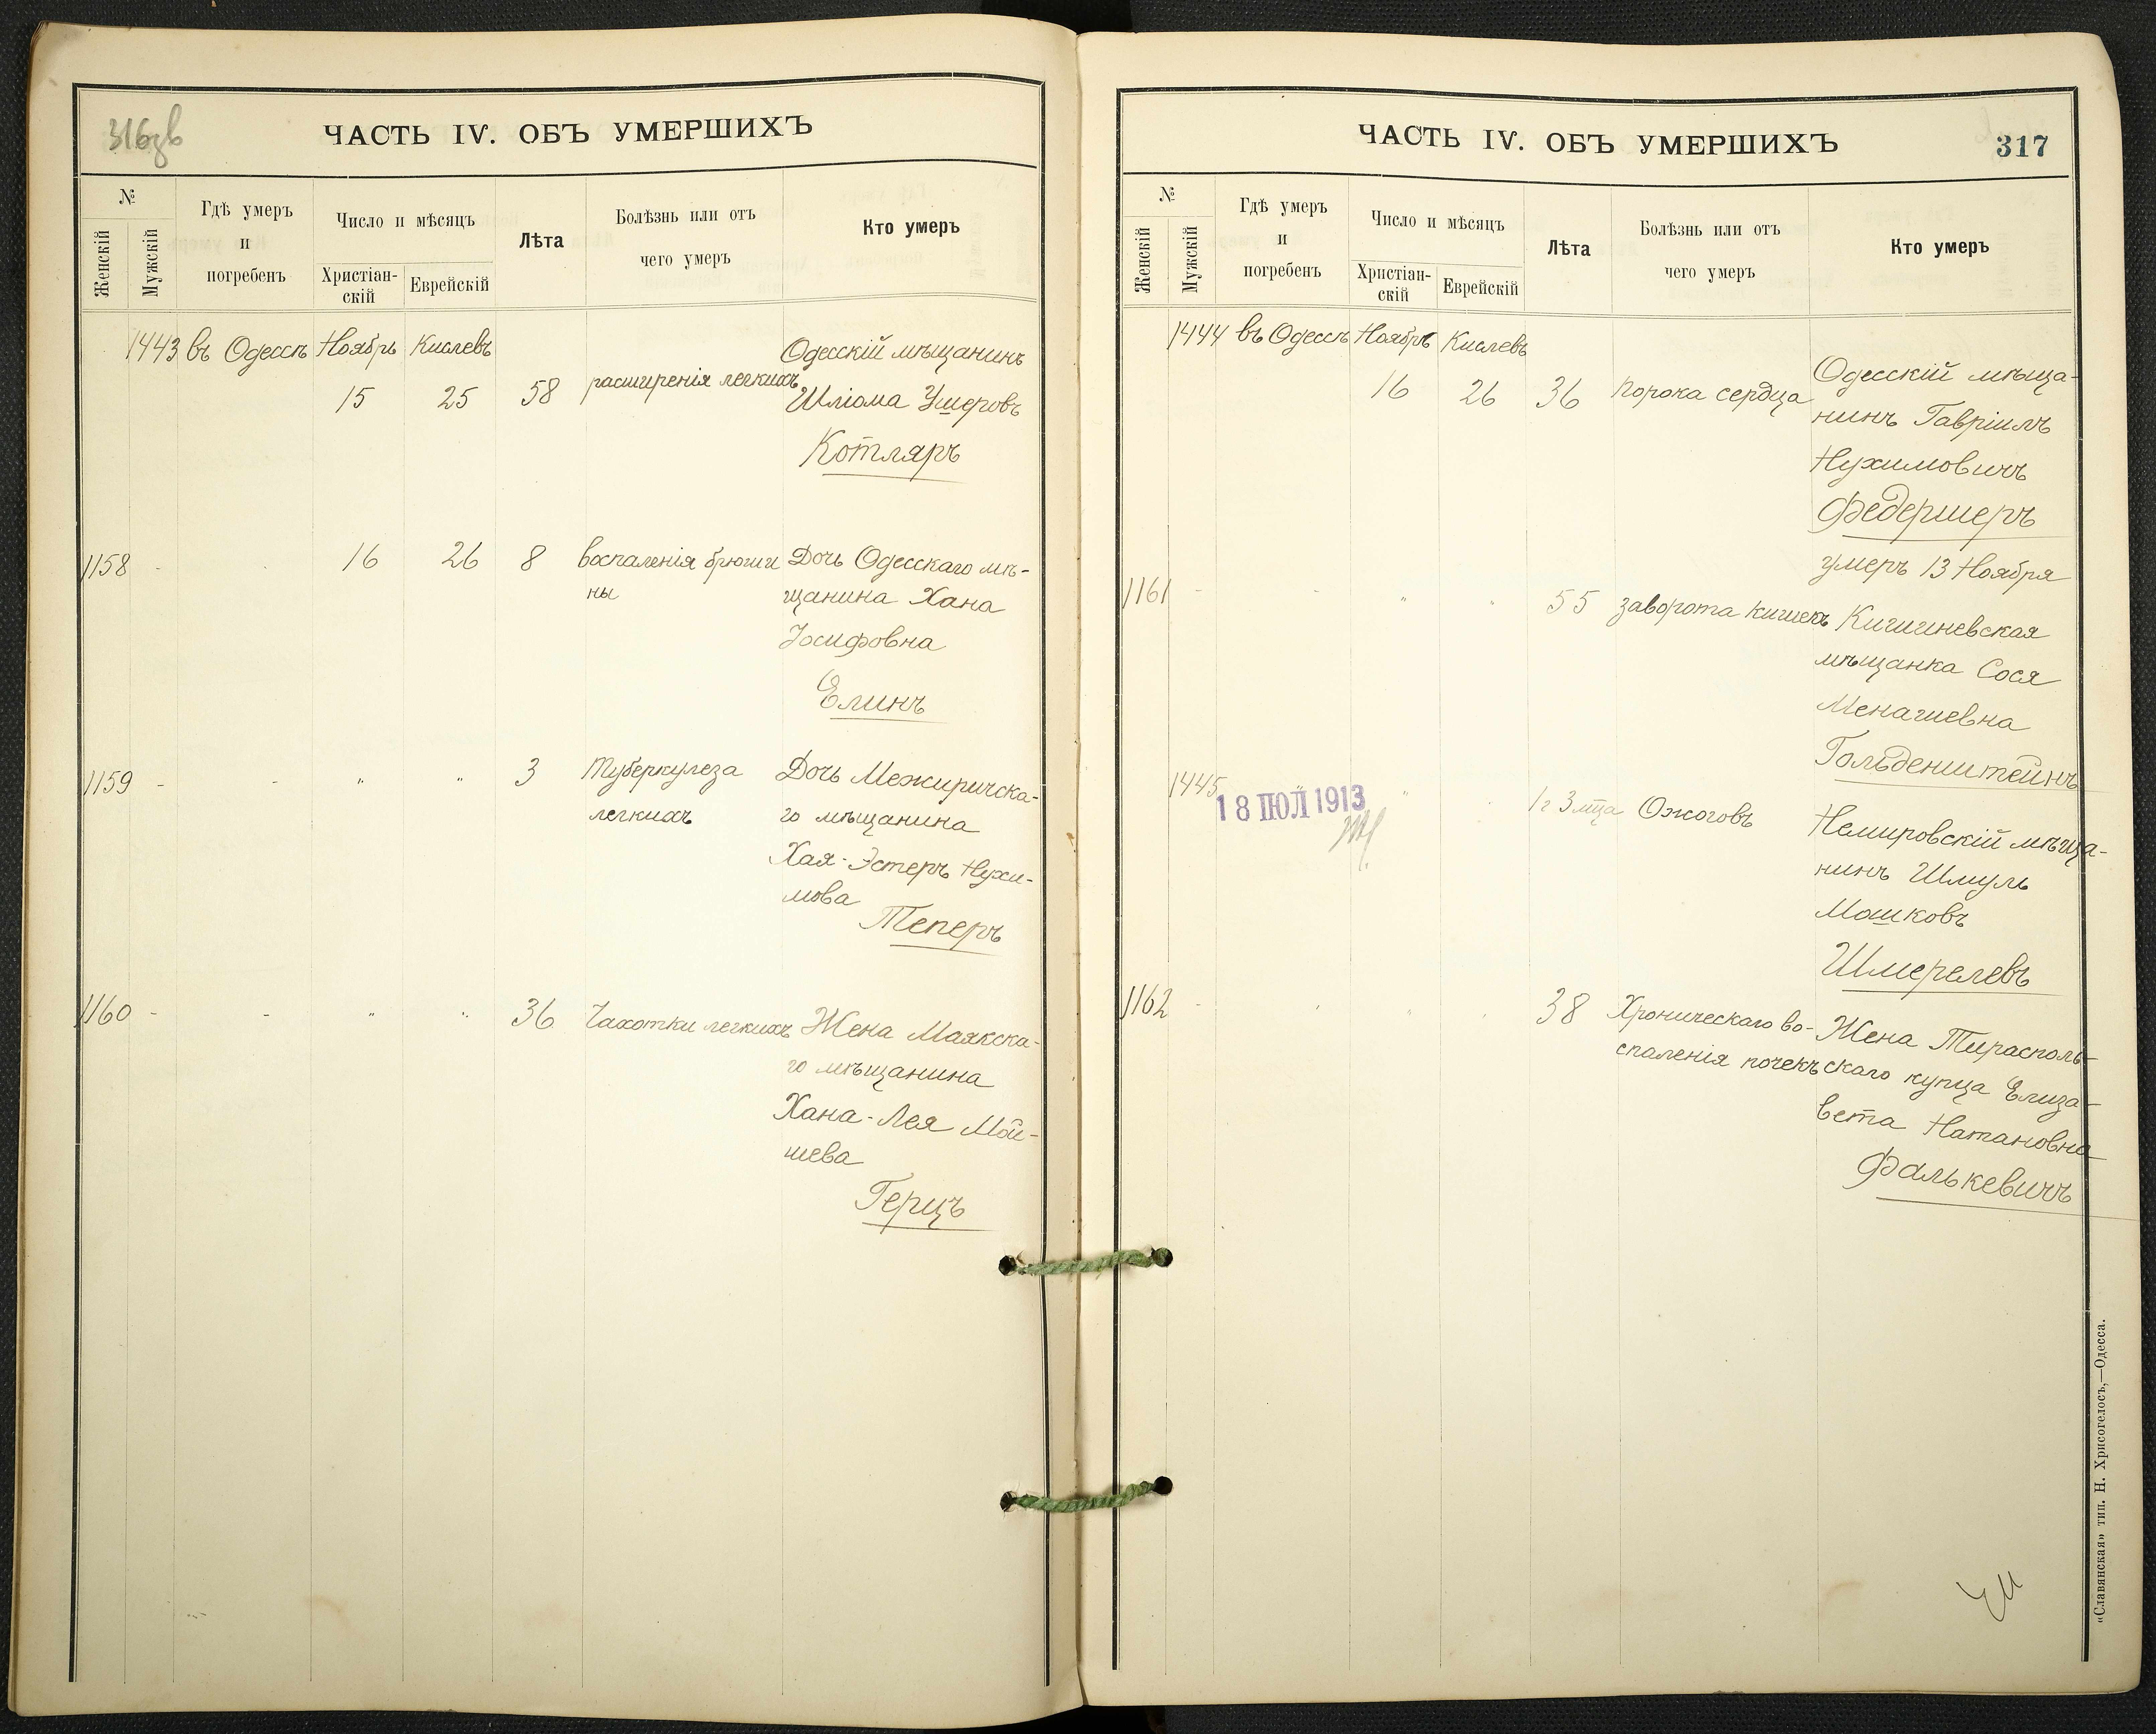 316зв
ЧАСТЬ IV. ОБЪ УМЕРШИХЪ
№
Женскій
Мужскій
Гдѣ умеръ
и
погребенъ
Число и мѣсяцъ
Христіан-
скій
Еврейскій
Лѣта
Болѣзнь или отъ
чего умеръ
Кто умеръ
1443 въ Одессѣ Ноябрь Кислевъ Одесскій мѣщанинъ
15 25 58 расширенія легкихъ Шліома Ушеровъ
Котляръ
1158 - 16 26 8 воспаленія брюши Дочь Одесскаго мѣ-
ны щанина Хана
Іосифовна
Елинъ
1159 - - " " 3 Туберкулеза Дочь Межиричска-
легкихъ го мѣщанина
Хая-Эстеръ Нухи-
мова
Теперъ
1160 - - " " 36 Чахотки легкихъ Жена Маякска-
го мѣщанина
Хана-Лея Мой-
шева
Герцъ
ЧАСТЬ IV. ОБЪ УМЕРШИХЪ
317
№
Женскій
Мужскій
Гдѣ умеръ
и
погребенъ
Число и мѣсяцъ
Христіан-
скій
Еврейскій
Лѣта
Болѣзнь или отъ
чего умеръ
Кто умеръ
1444 въ Одессѣ Ноябрь Кислевъ
16 26 36 порока сердца Одесскій мѣща-
нинъ Гавріилъ
Нухимовичъ
Федершеръ
умеръ 13 Ноября
1161 - - " " 55 заворота кишекъ Кишиневская
мѣщанка Сося
Менашевна
Гольденштейнъ
1445 " 1 г 3 мца Ожоговъ Немировскій мѣща-
18 ІЮЛ 1913
нинъ Шмуль
Мошковъ
Шмерелевъ
1162 - " 38 Хроническаго во- Жена Тирасполь-
спаленія почекъ скаго купца Елиза-
вета Натановна
Фалькевичъ
«Славянская» тип. Н. Хрисогелосъ,—Одесса.